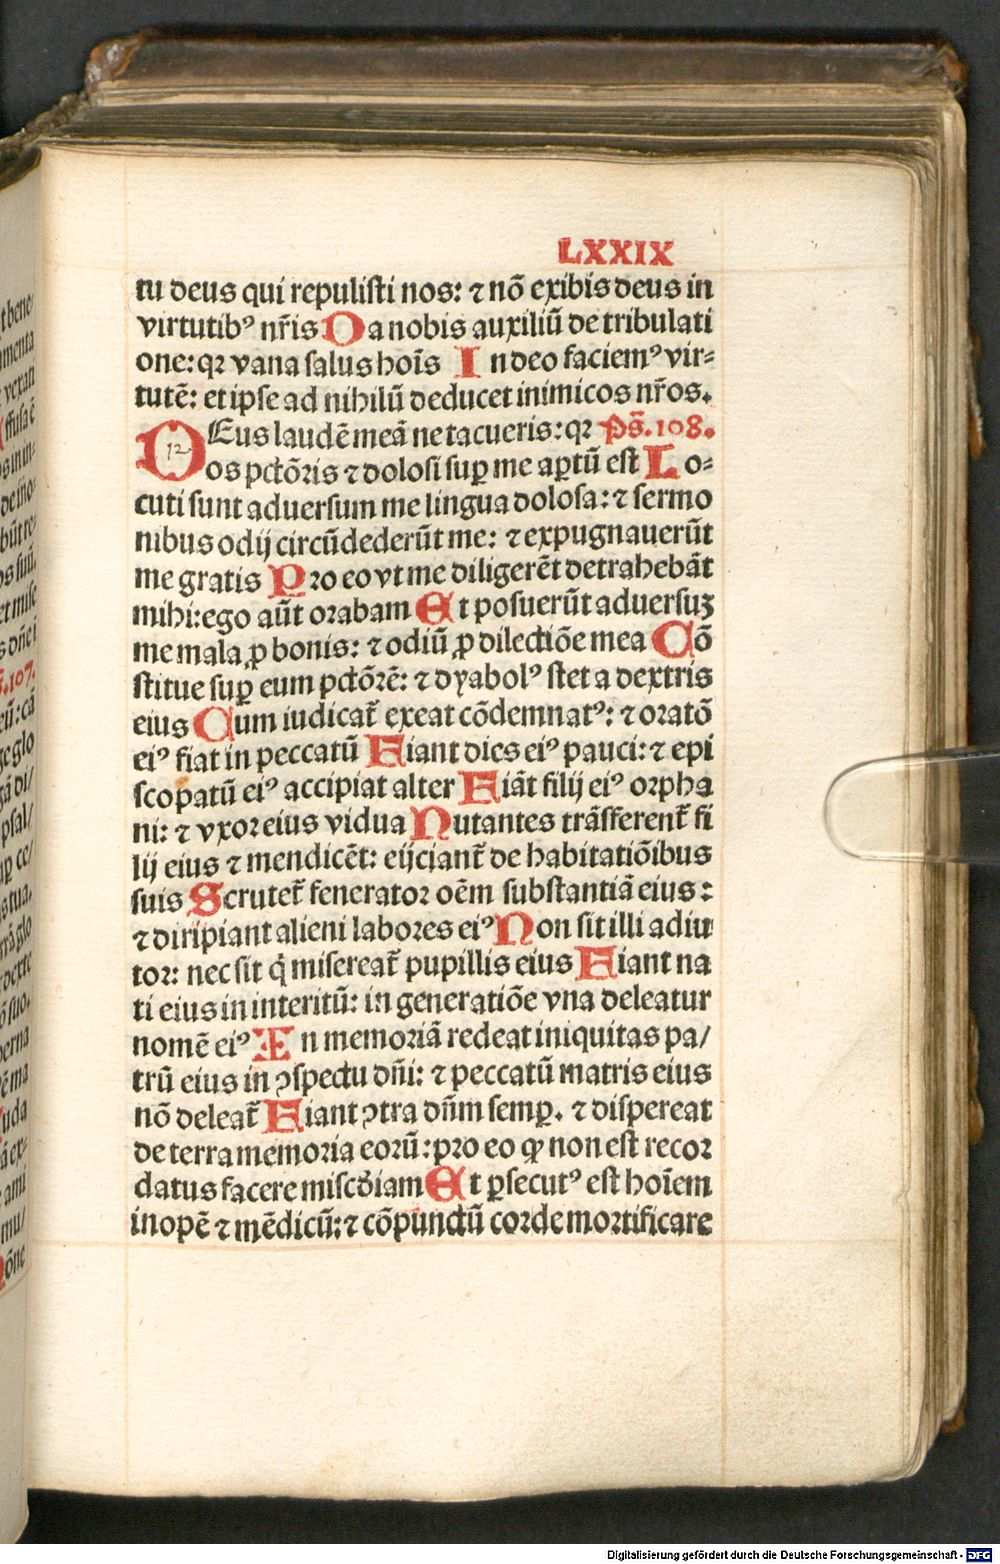 LXXIX
tu deus qui repulisti nos: ⁊ nō exibis deus in
virtutibꝰ nr̄is Da nobis auxiliū de tribulati
one: qꝛ vana salus hoīs In deo faciemꝰ vir⸗
tutē: et ipse ad nihilū deducet inimicos nr̄os.
DEus laudē meā ne tacueris: qꝛ Ps̄. 108.
12
os pctōris ⁊ dolosi suꝑ me aꝑtū est Lo⸗
cuti sunt aduersum me lingua dolosa: ⁊ sermo
nibus odij circūdederūt me: ⁊ expugnauerūt
me gratis Pro eo vt me diligerēt detrahebāt
mihi: ego aūt orabam Et posuerūt aduersuꝫ
me mala ꝓ bonis: ⁊ odiū ꝓ dilectiōe mea Cō
stitue suꝑ eum pctōrē: ⁊ dyabolꝰ stet a dextris
eius Cum iudicat̄ exeat cōdemnatꝰ: ⁊ oratō
eiꝰ fiat in peccatū Fiant dies eiꝰ pauci: ⁊ epi
scopatū eiꝰ accipiat alter Fiāt filij eiꝰ orpha
ni: ⁊ vxor eius vidua Nutantes trāsferent̄ fi
lij eius ⁊ mendicēt: eijciant̄ de habitatiōibus
suis Scrutet̄ fenerator oēm substantiā eius:
⁊ diripiant alieni labores eiꝰ Non sit illi adiu
tor: nec sit q̄ misereat̄ pupillis eius Fiant na
ti eius in interitū: in generatiōe vna deleatur
nomē eiꝰ In memoriā redeat iniquitas pa/
trū eius in ꝯspectu dn̄i: ⁊ peccatū matris eius
nō deleat̄ Fiant ꝯtra dn̄m semꝑ. ⁊ dispereat
de terra memoria eorū: pro eo ꝙ non est recor
datus facere miscd̄iam Et ꝑsecutꝰ est hoīem
inopē ⁊ mēdicū: ⁊ cōpunctū corde mortificare
Digitalisierung gefördert durch die Deutsche Forschungsgemeinschaft - DFG